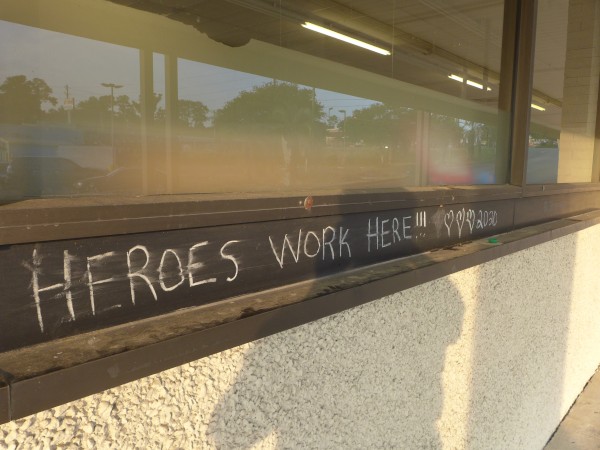 HEROES WORK HERE!!! ♡♡♡ 2020